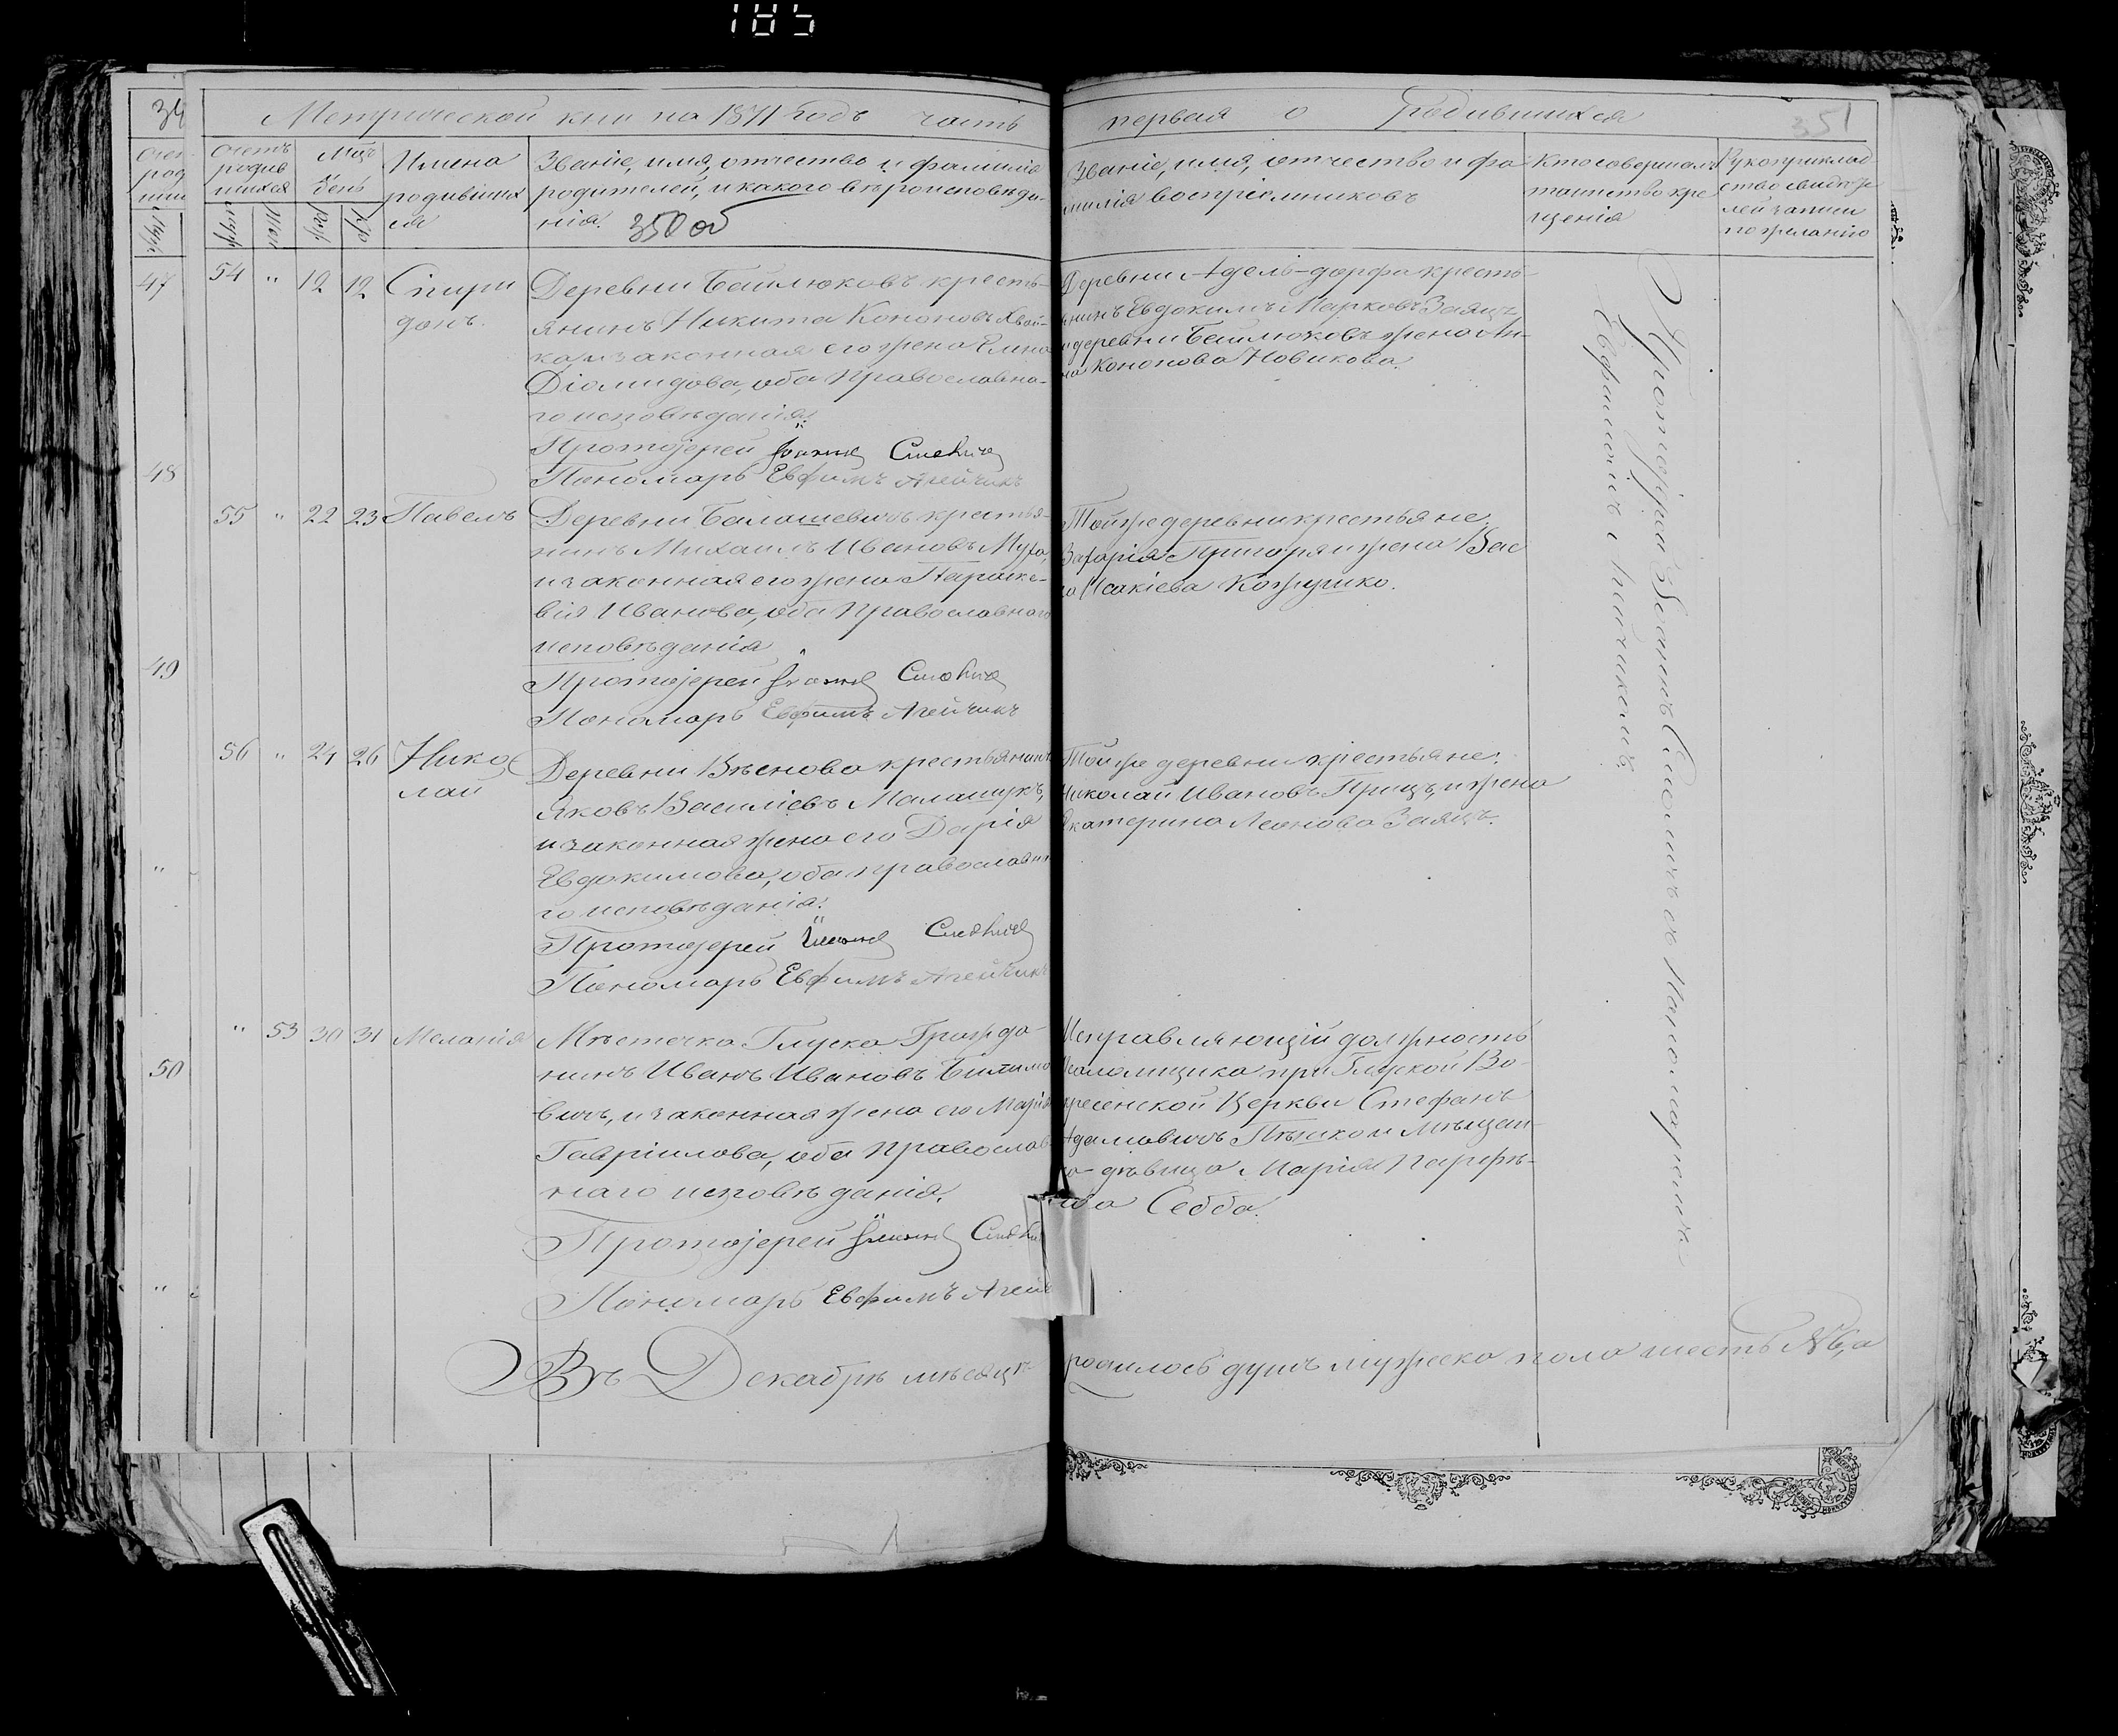 185
34
Метрической кни на 1871 годъ часть первая о родившихся
351
Счетъ родив шихся
Мцъ День
Имена родившихся
Званіе, имя, отчество и фамилія
родителей, и какого вѣроисповѣда-
нія.
350 об
Званіе, имя, отчество и фа-
милія воспріемниковъ
Кто совершалъ
таинство кре
щенія
Рукоприклад
ство свидѣте
лей записи
по желанію
47
54 " 12 12 Спири
донъ.
Деревни Байлюковъ кресть-
янинъ Никита Кононовъ
и законная его жена
Діомидова, оба Православна-
го исповѣданія:
Протоіерей Іоаннъ
Пономарь Евфимъ Агейчикъ
Деревни Адель-дорфа кресть-
янинъ Евдокимъ Марковъ Заяцъ
и деревни Байлюковъ жена Ан-
на Кононова Новикова.
48
55 " 22 23 Павелъ
Деревни Балашевичъ крестья-
нинъ Михаилъ Ивановъ Муха,
и законная его жена Параске-
вія Иванова, оба Православнаго
исповѣданія
Протоіерей Іоаннъ
Пономарь Евфимъ Агейчикъ
Той же деревни крестьяне:
Захарія Григоря и жена
Исакіева Кожушко.
49
56 " 24 26 Нико
лай
Деревни Вѣсново крестьянинъ
Яковъ Василіевъ Малашукъ,
и законная жена его Дарія
Евдокимова, оба православна
го исповѣданія:
Протоіерей Іоаннъ
Пономарь Евфимъ Агейчикъ
Той же деревни крестьяне:
Николай Ивановъ Прищъ, и жена
Екатерина Леонова Заяцъ.
" 53 30 31 Меланія
50
Мѣстечка Глуска Гражда-
нинъ Иванъ Ивановъ
вичъ, и законная жена его Марія
Гавріилова, оба Православ
наго исповѣданія.
Протоіерей Іоаннъ
Пономарь Евфимъ Агейч
Исправляющій должность
Псаломщика при Глуской Во-
кресенской Церкви Стефанъ
Адамовичъ и мѣщан-
ка-дѣвица Марія Парфѣ-
нова Себба.
Протоіерей Іоаннъ съ Пономаремъ
Евфиміемъ Агейчикомъ.
Въ Декабрѣ мѣсяцѣ родилось душъ мужеска пола шесть № 6, а